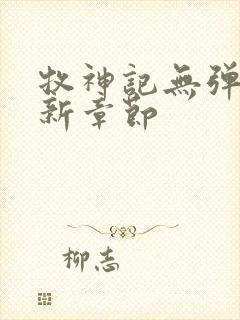 牧神記無弹
新章節
柳志